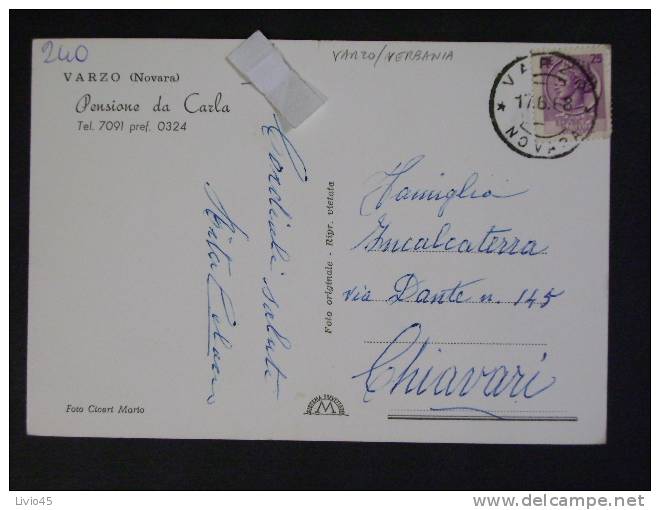 240
VARZO/VERBANIA
VARZO (Novara)
Pensione da Carla
Tel. 7091 pref. 0324
25
VARZO
17.6.68
NOVARA
Cordiali saluti
Foto originale - Ripr. vietata
Famiglia
Incalcaterra
via Dante n. 145
Chiavari
Foto Ciceri Mario
M
Livio45
delcampe.net